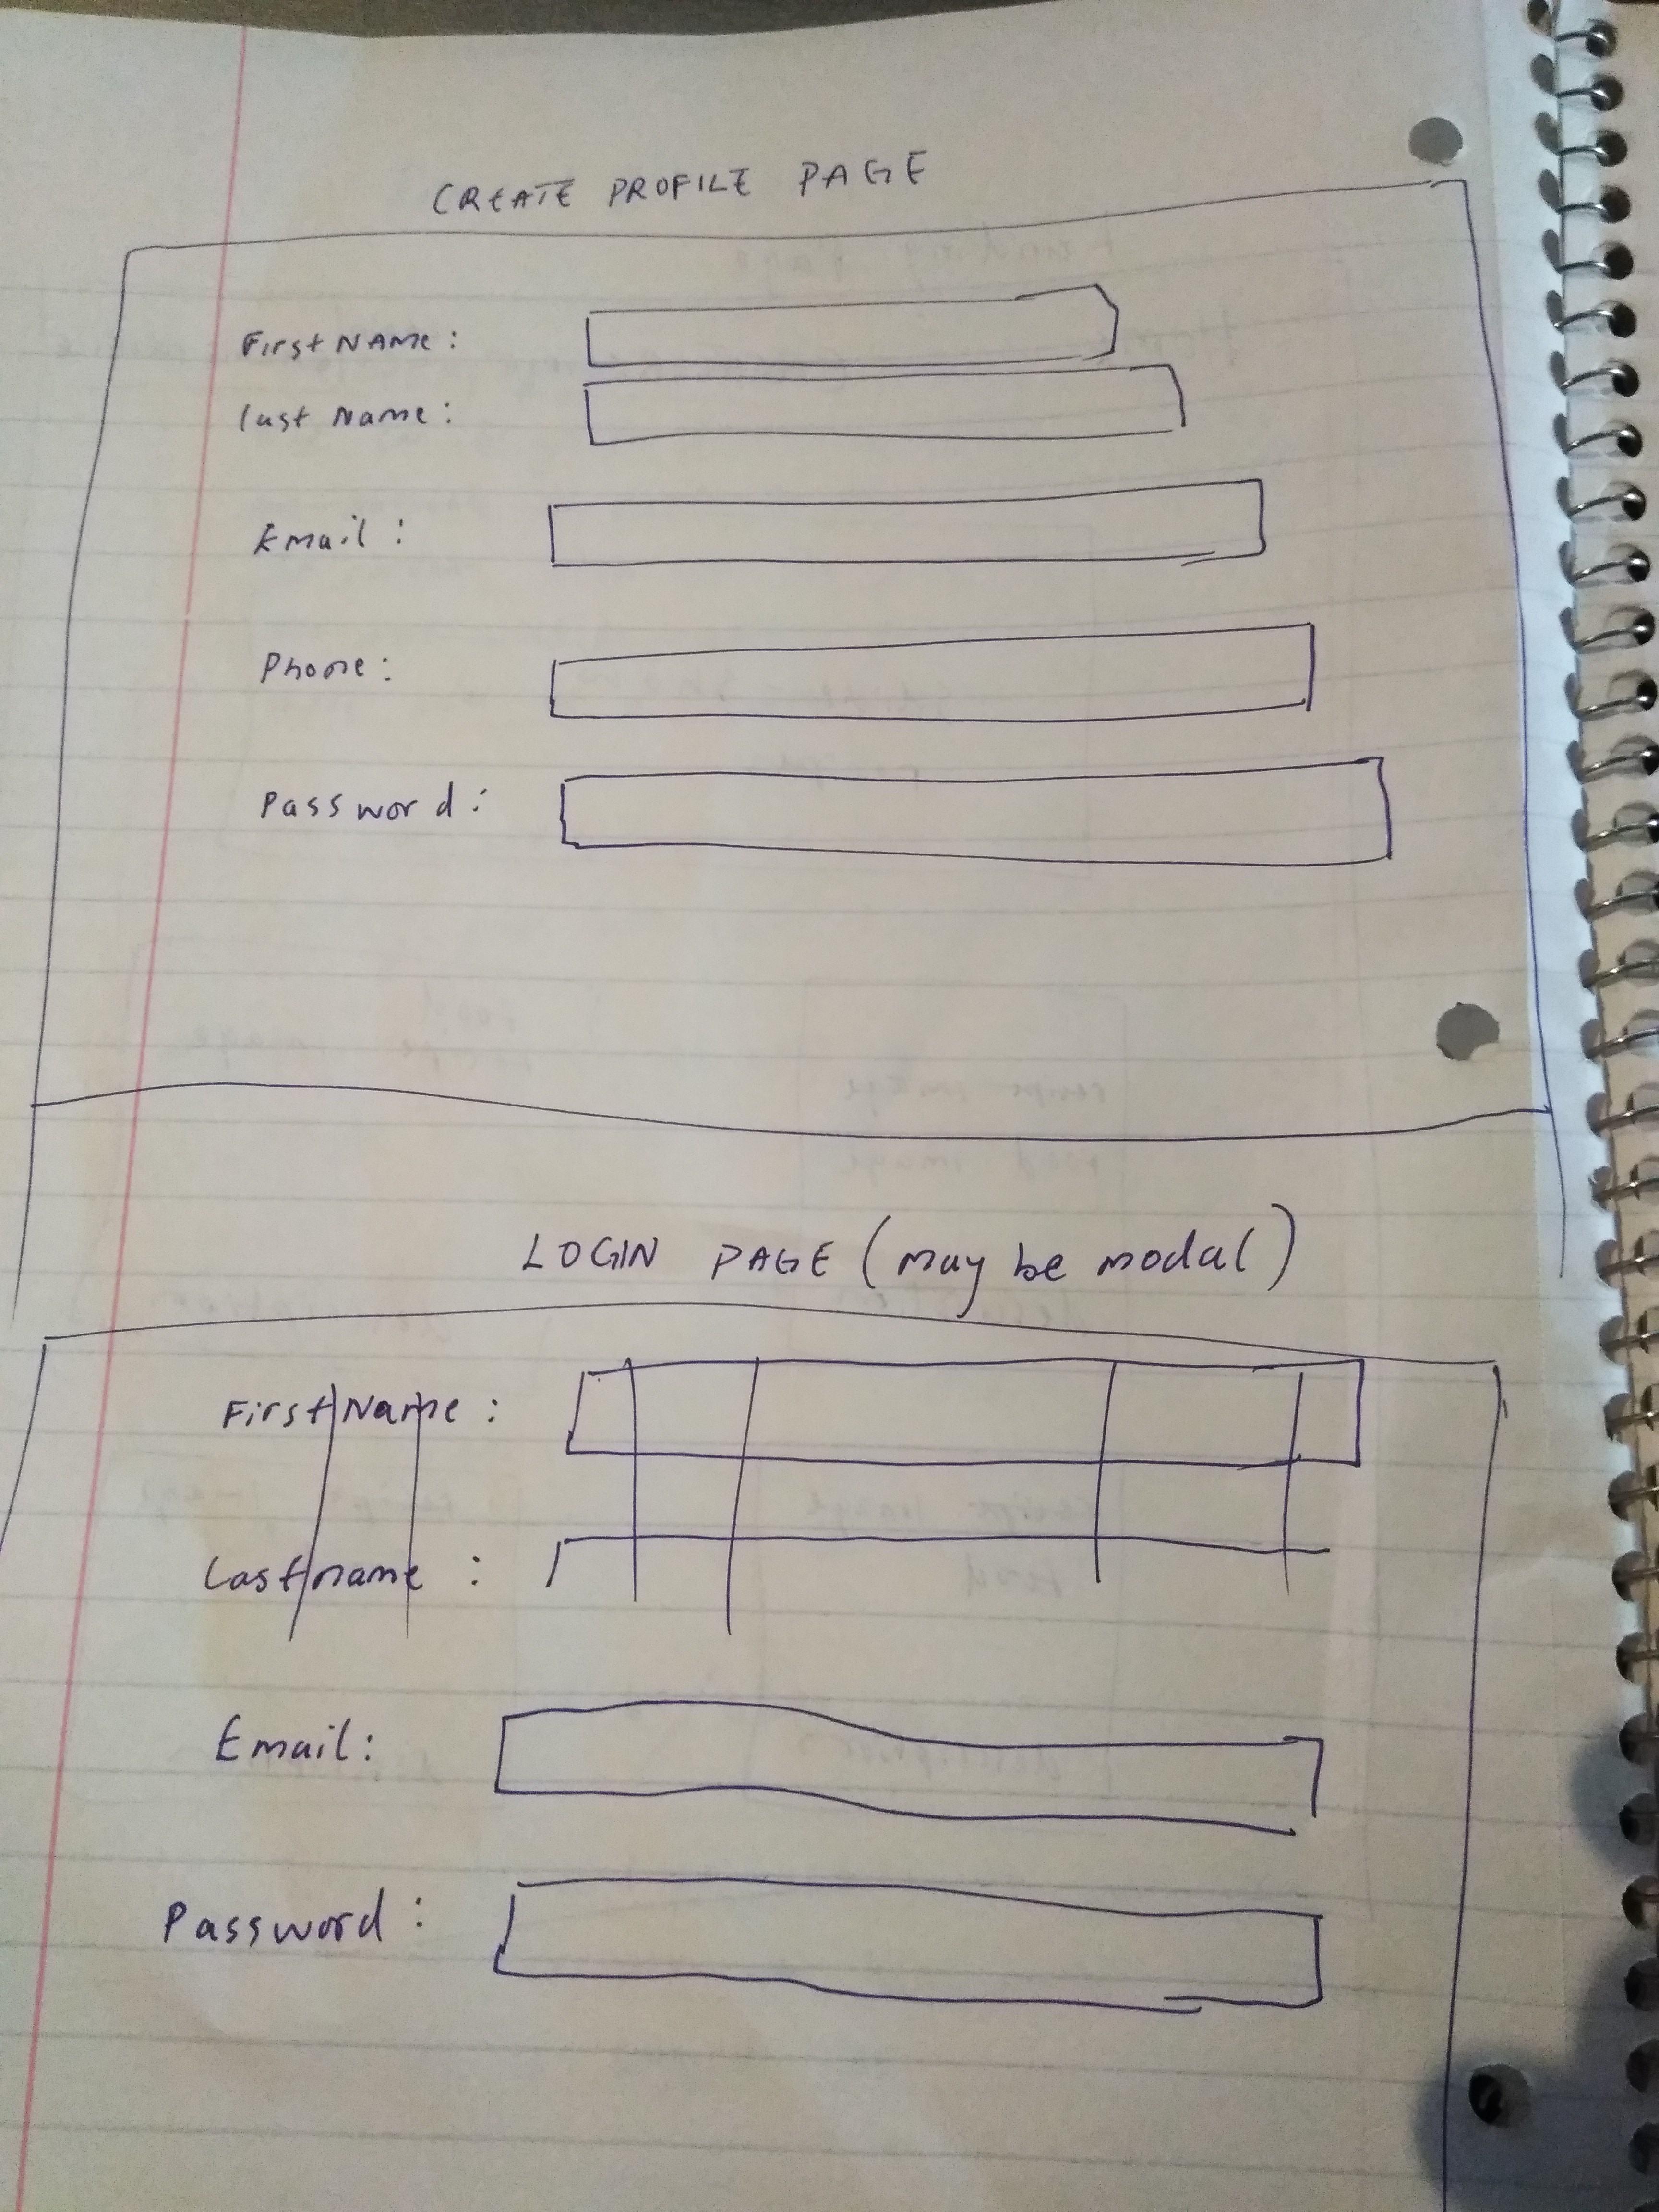 CREATE PROFILE PAGE
First NAMe:
last Name:
Email:
Phone:
Password:
LOGIN PAGE (may be modal)
First Name:
Last name :
Email:
Password: